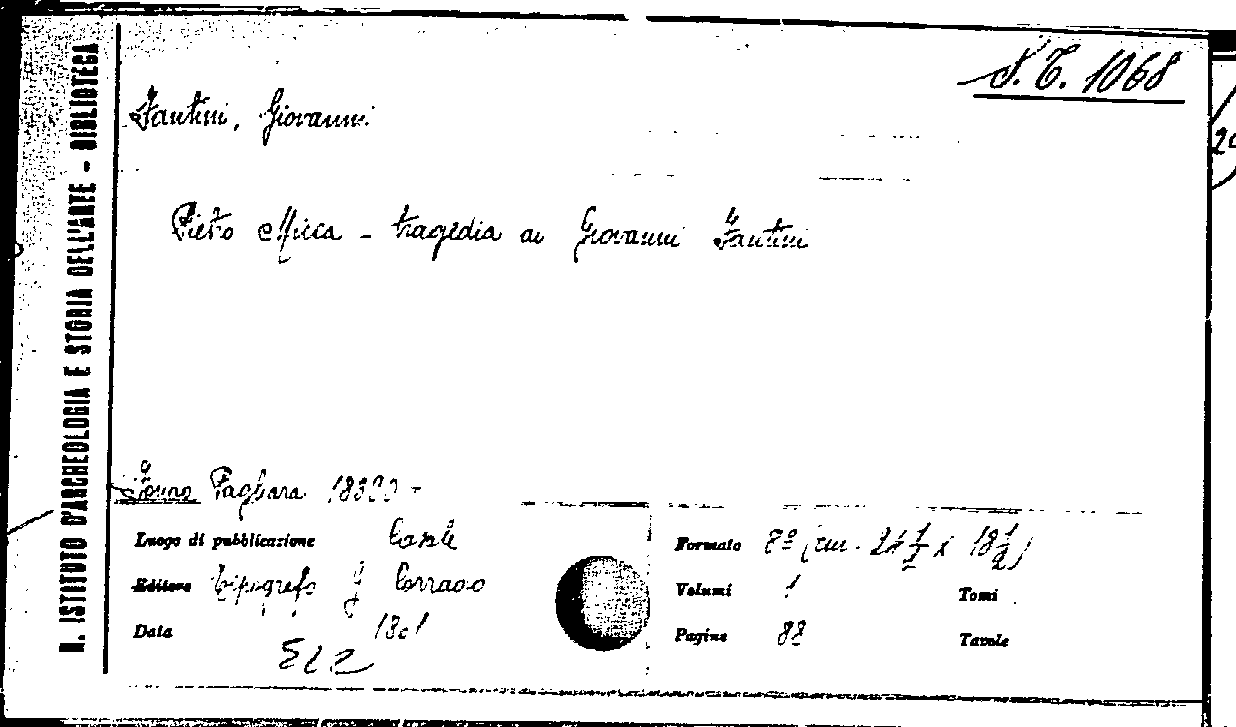 R. ISTITUTO D'ARCHEOLOGIA E STORIA DELL'ARTE - BIBLIOTECA
S.T. 1068
Fantini, Giovanni
Pietro Micca - tragedia di Giovanni Fantini
Pagliara
Luogo di pubblicazione Casale
Editore Tipografo G Corrado
Data
Formato 8º (cm. 24½ x 18½)
Volumi 1 Tomi
Pagine 88 Tavole